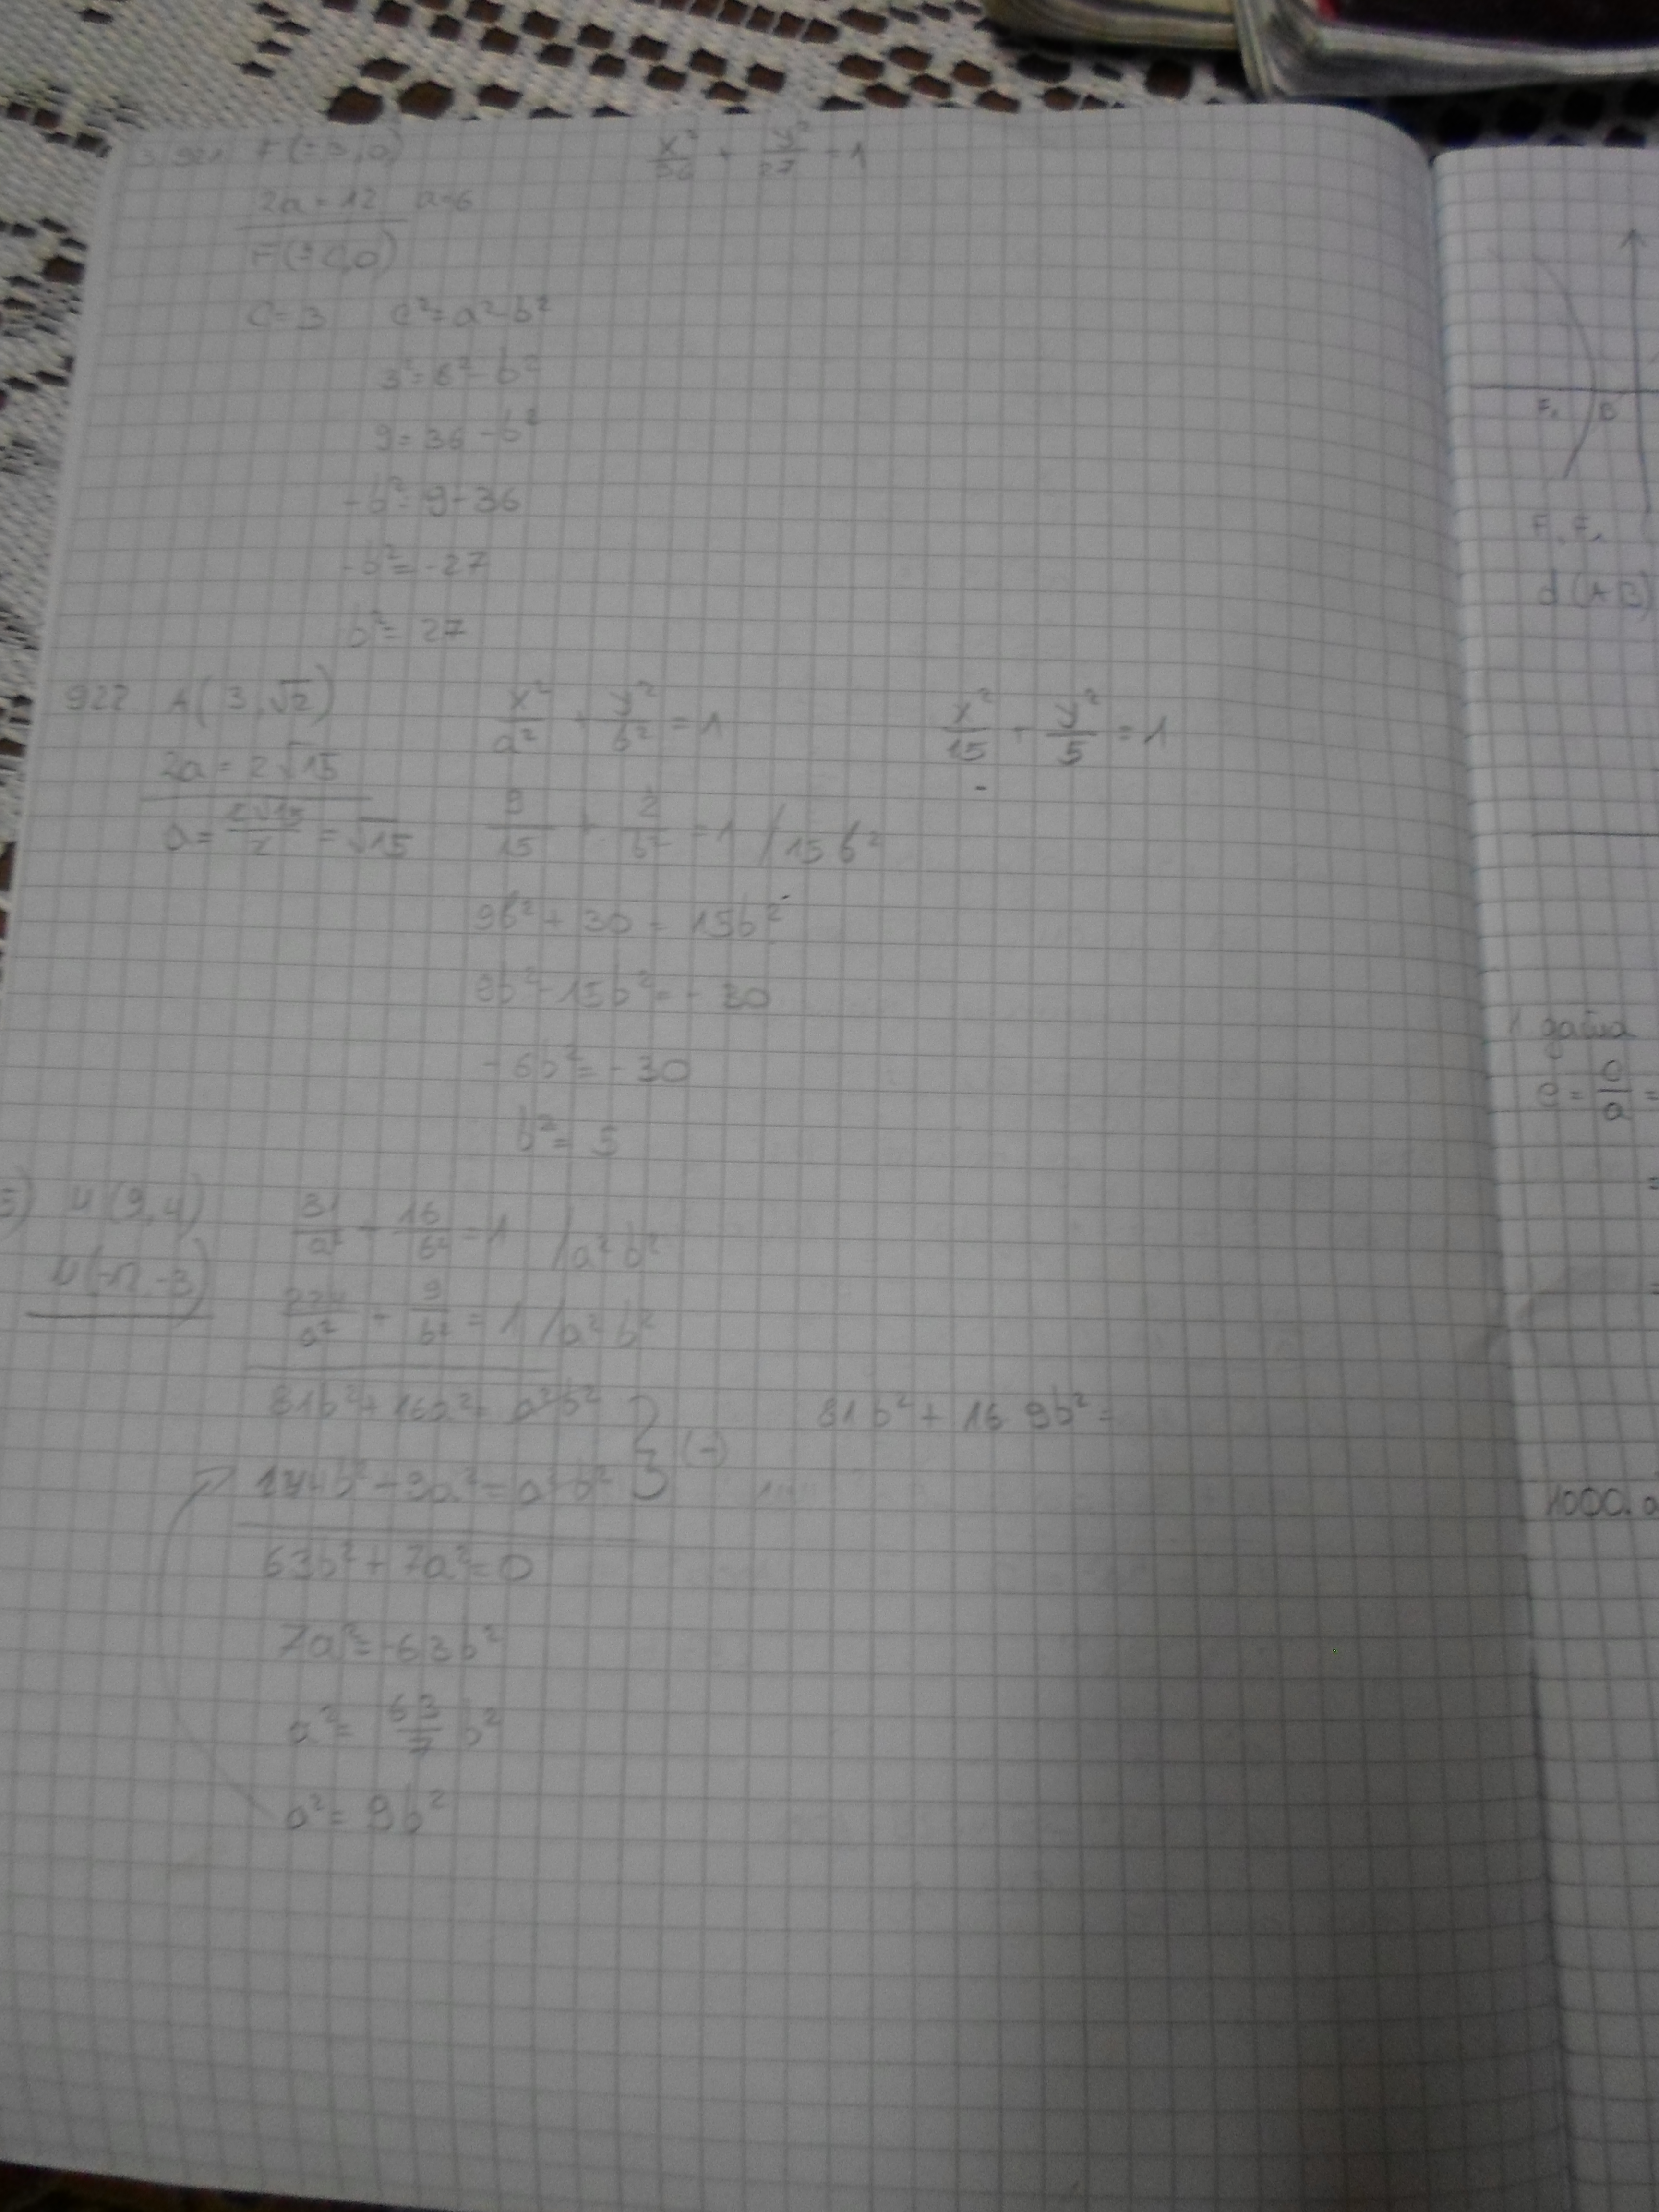 921 F(±3,0)
x²/36 + y²/27 = 1
2a = 12 a=6
F(±c,0)
c=3 c²=a²-b²
3²=6²-b²
9=36-b²
-b²=9-36
-b²=-27
b²=27
922 A(3,√2)
x²/a² + y²/b² = 1
x²/15 + y²/5 = 1
2a=2√15
a=2√15/2=√15
9/15 + 2/b² = 1 /15b²
9b²+30=15b²
9b²-15b²=-30
-6b²=-30
b²=5
(9,4)
81/a² + 16/b² = 1 /a²b²
/a² + 9/b² = 1 /a²b²
81b²+16a²=a²b²
81b²+16 9b²=
(-)
b²+9a²=a²b²
63b²+7a²=0
7a²=-63b²
a²=63/7 b²
a²=9b²
F₁ B
d(AB)
e=c/a=
1000.